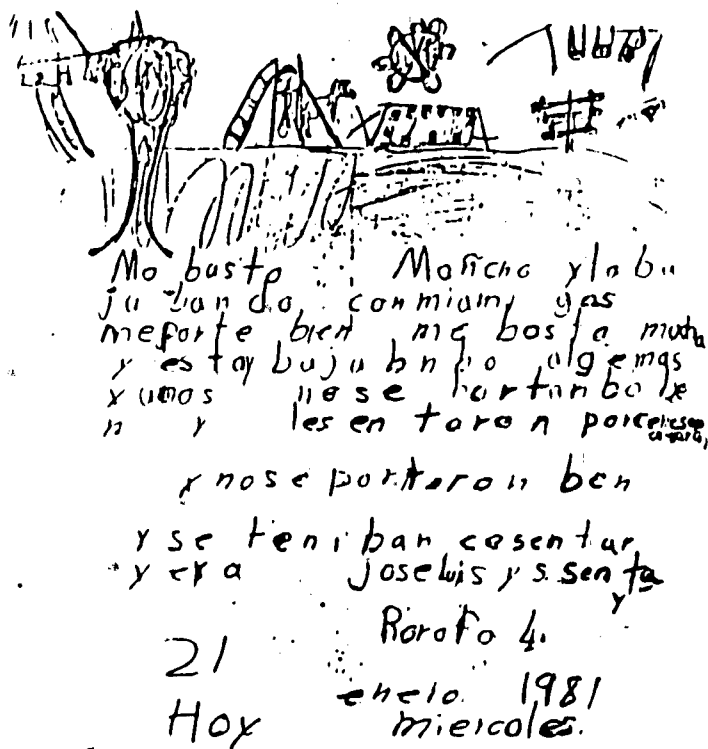 Mo busta Moricho y la bu
ju bando conmiami gas
meporte bien me bosta mucha
y estoy bujubndo algemas
y unos nose
n y les en taron por
y nose portaron ben
y se teniban casentar
y era joseluis y s. senta
y
21
enero 1981
Hoy miercoles.